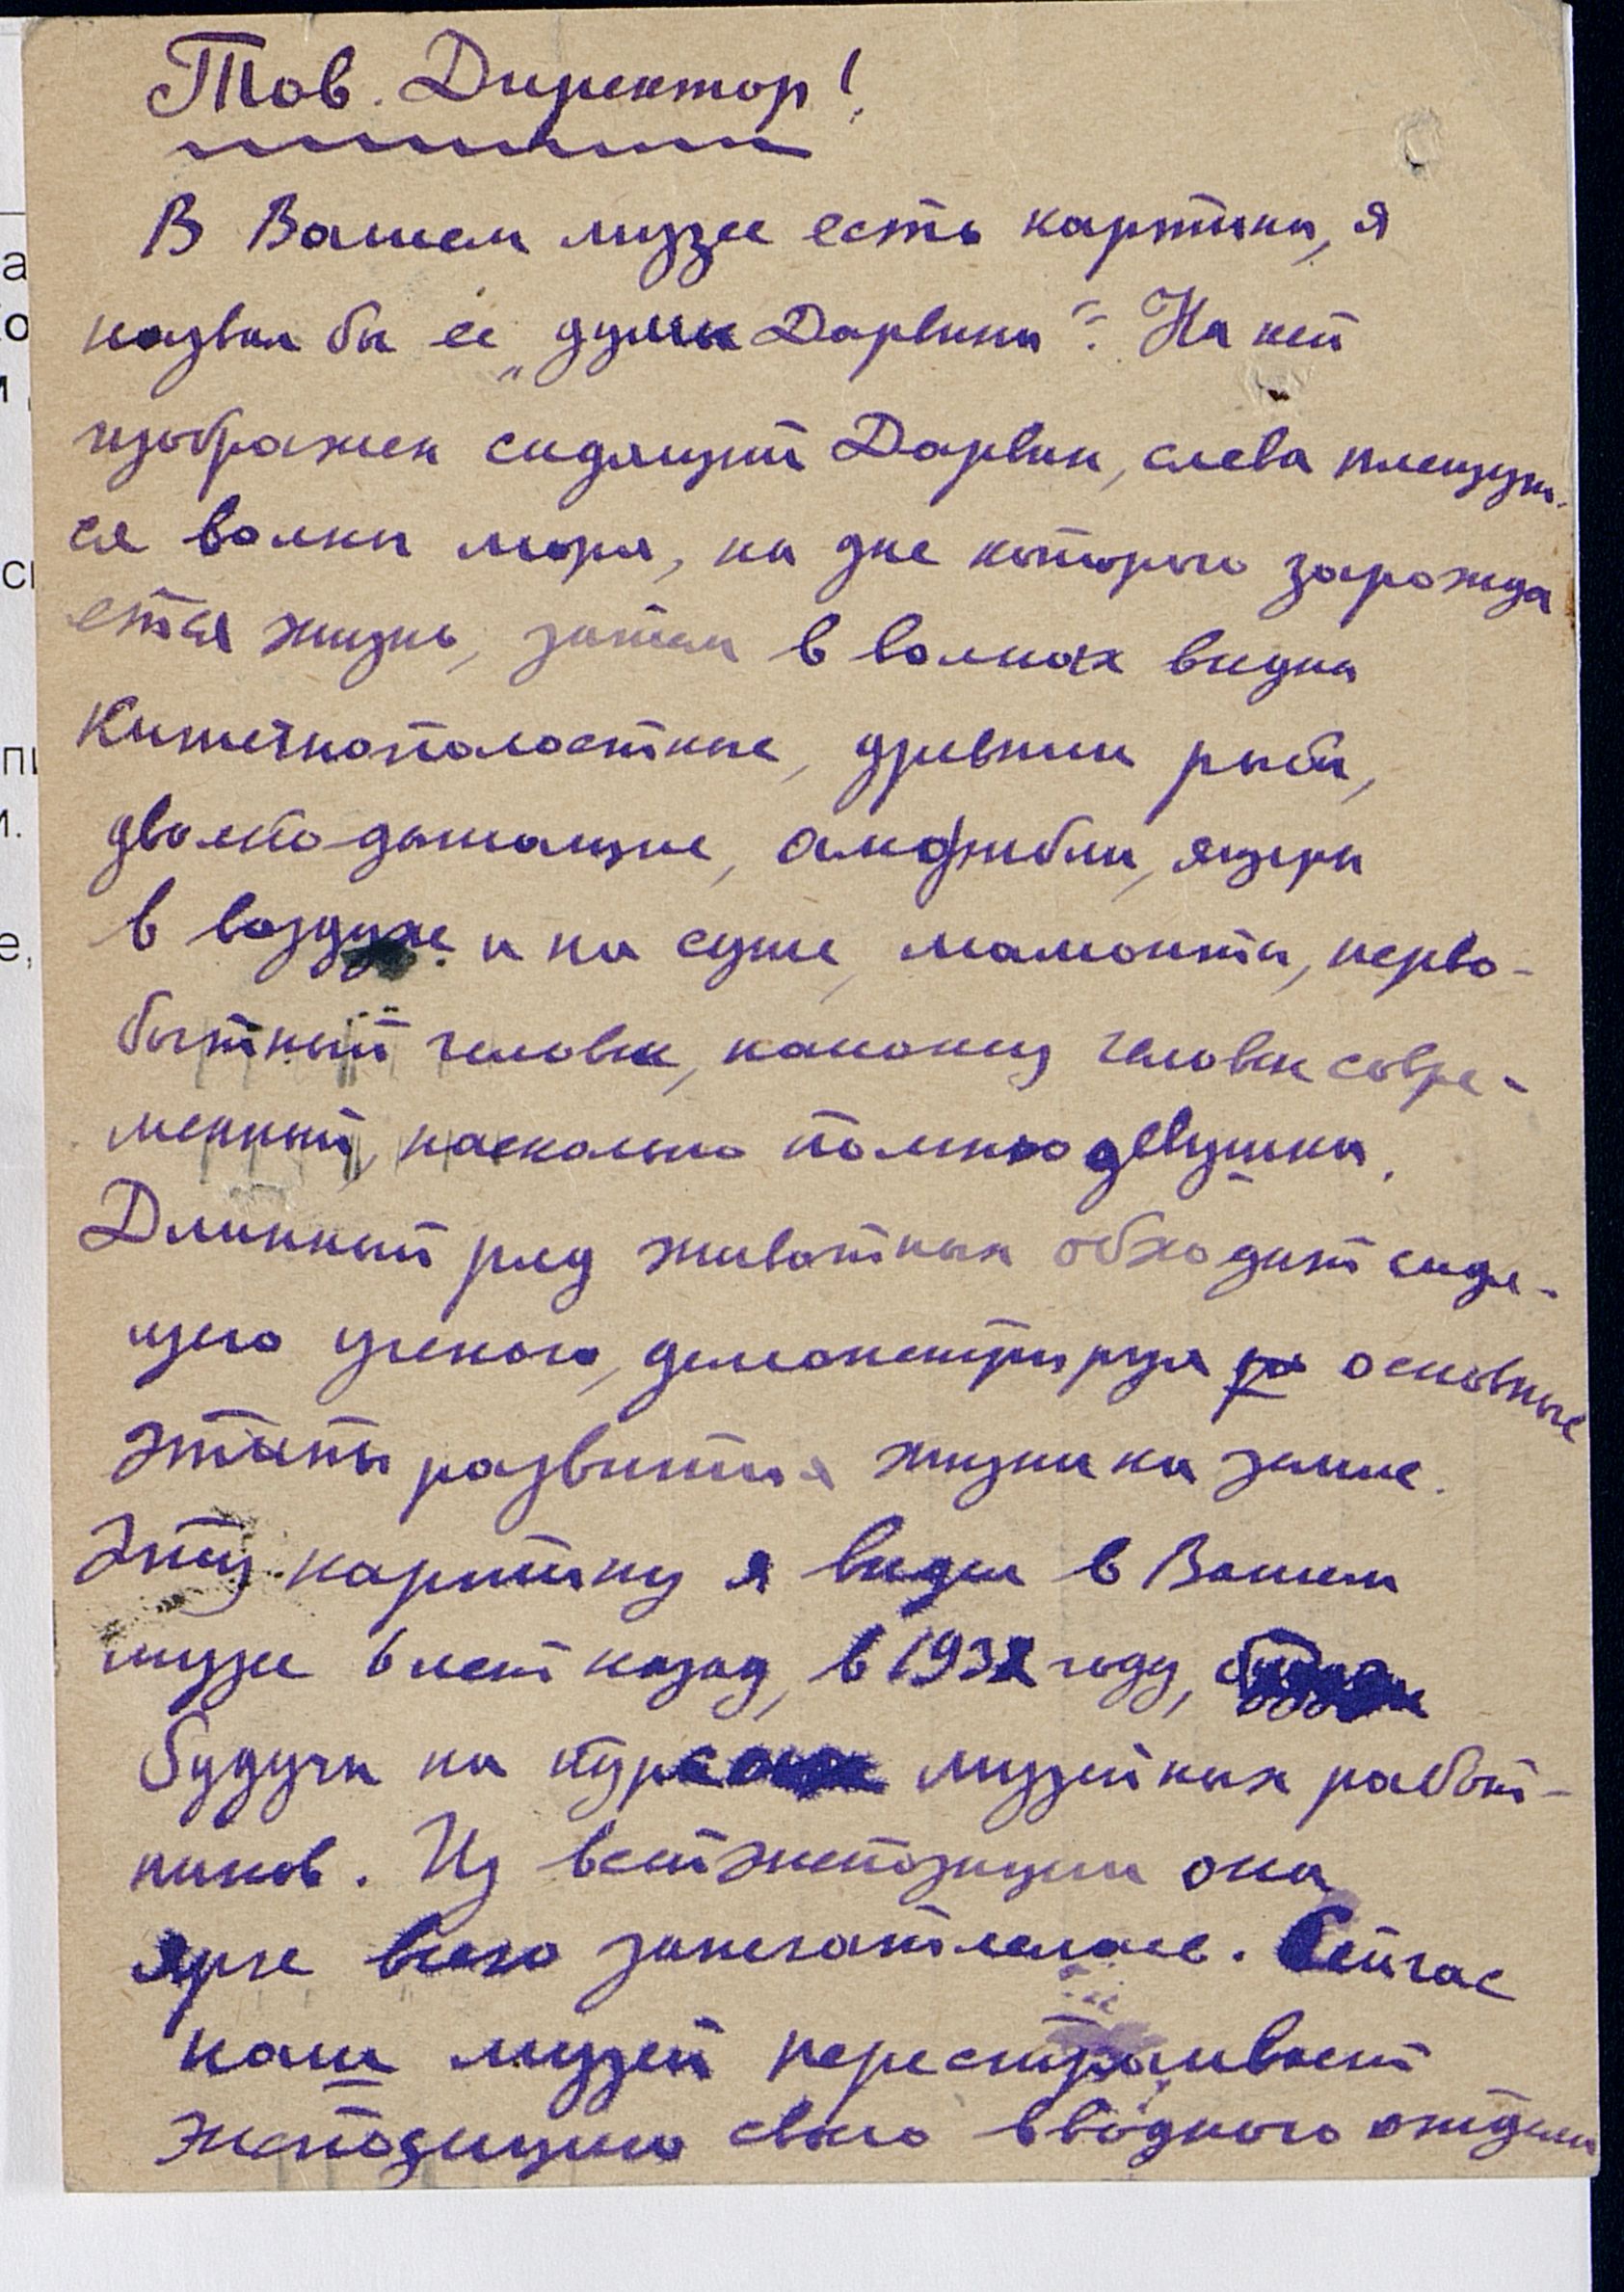 Тов. Директор!
В Вашем музее есть картина, я
назвал бы ее „думы Дарвина“. На ней
изображен сидящий Дарвин, слева плещут-
ся волны моря, на дне которого зарожда
ется жизнь, затем в волнах видны
Кишечнополостные, древние рыбы,
двоякодышащие, амфибии, ящеры
в воздухе и на суше, мамонты, перво-
бытный человек, наконец человек совре-
менный, насколько помню девушка.
Длинный ряд животных обходит сидя-
щего ученого, демонстрируя основные
этапы развития жизни на земле.
Эту картину я видел в Вашем
музее 6 лет назад, в 1932 году,
будучи на курсах музейных работ-
ников. Из всей экспозиции она
ярче всего запечатлелась. Сейчас
наш музей перестраивает
экспозицию своего вводного отдела
а
о
и
е,